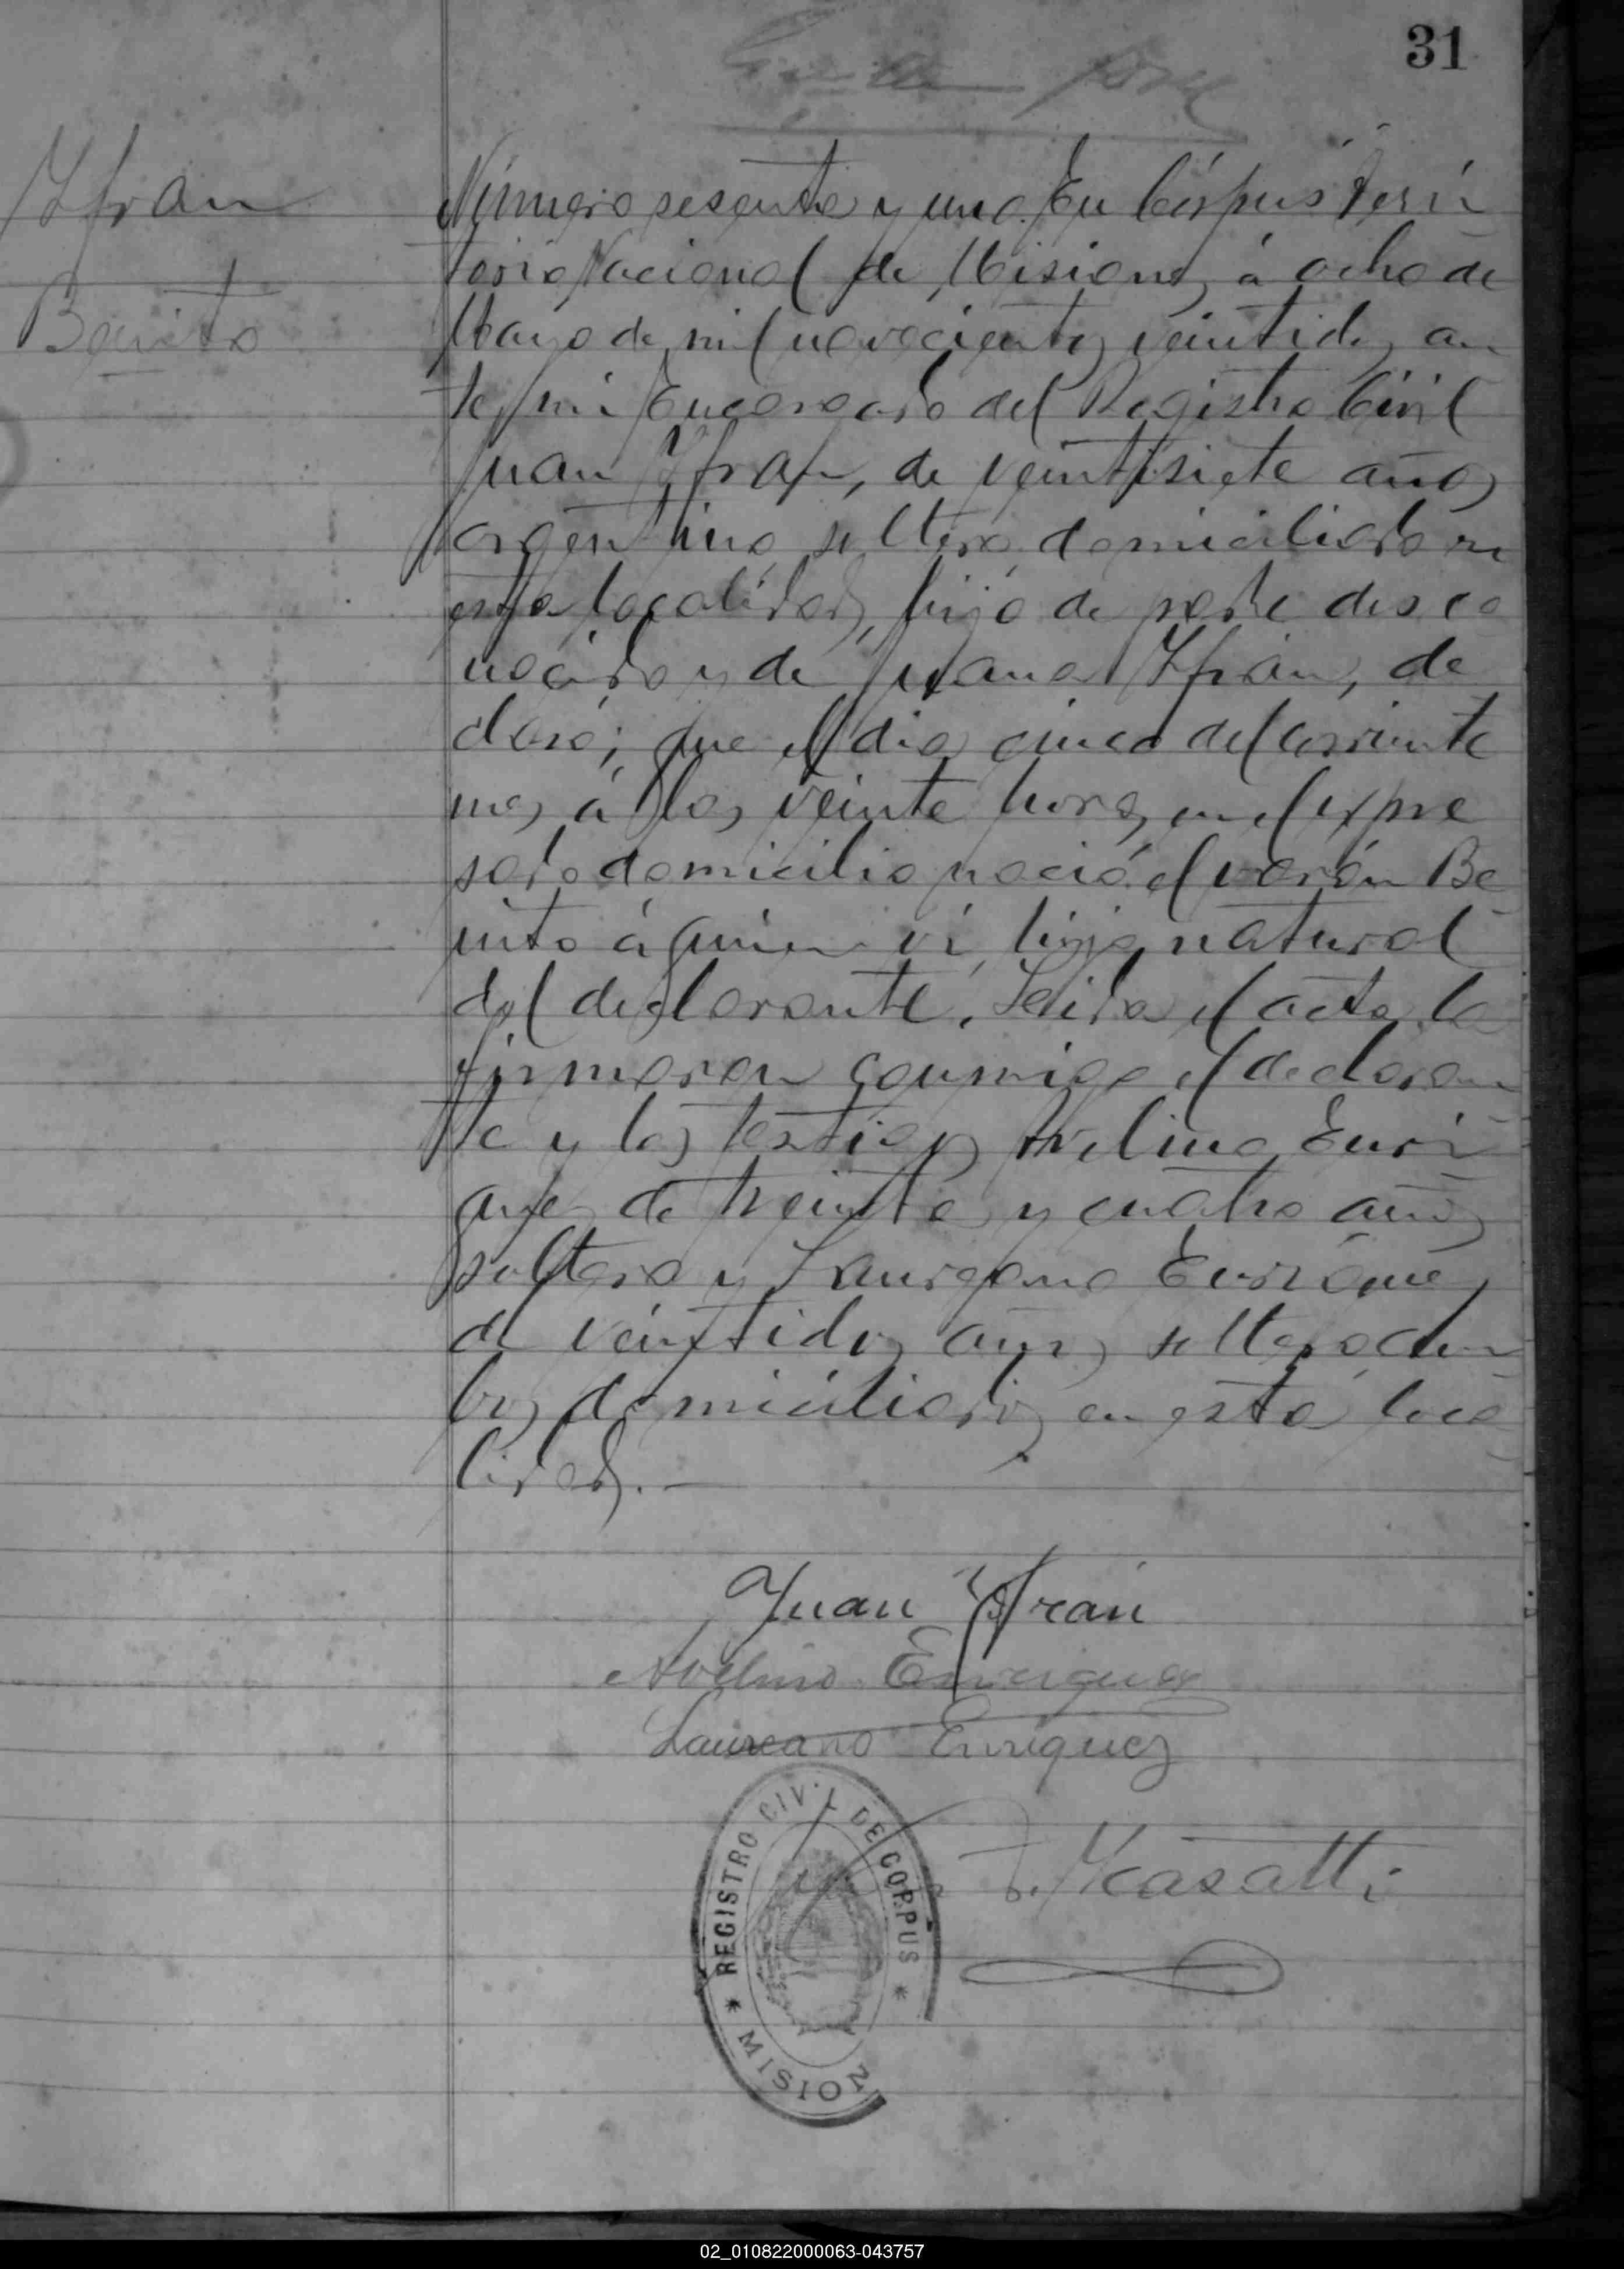 31
Yfran
Benito
Número sesenta y uno. En Córpus Terri
torio Nacional de Misiones, á ocho de
Mayo de mil novecientos veintidos, an
te mi Encargado del Registro Civil
Juan Yfran, de veintisiete años,
argentino, soltero, domiciliado en
esta localidad, hijo de padre desco
nocido y de Juana Yfran, de
claró; que el dia cinco del corriente
mes á las veinte horas, en el expre
sado domicilio nació el varón Be
nito á quien ví, hijo natural
del declarante. Leida el acta, la
firmaron conmigo el declaran
te y los testigos Avelino Enri
quez de treinta y cuatro años,
soltero y Laureano Enriquez,
de veintidos años, soltero am
bos domiciliados en esta loca
lidad.—
Juan Yfran
Avelino Enriquez
Laureano Enriquez
Casatti
REGISTRO CIVIL DE CORPUS
* MISION *
02_010822000063-043757